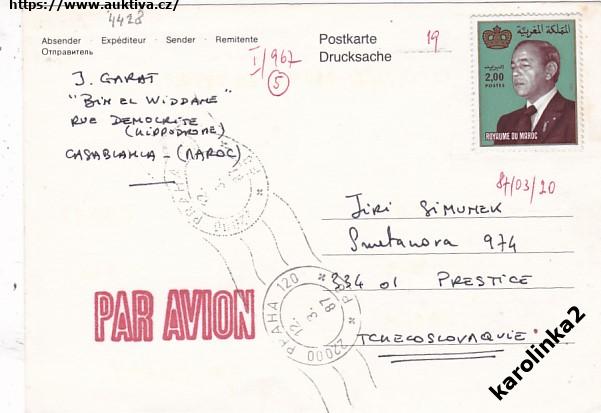 https://www.auktiva.cz/
4428
Absender · Expéditeur · Sender · Remitente
Отправитель
Postkarte
Drucksache
19
I/967
5
J. GARAT
"BIN EL WIDDANE"
RUE DEMOCRITE
(HIPPODROME)
CASABLANCA - (MAROC)
المملكة المغربية
البريد
2,00
POSTES
ROYAUME DU MAROC
87/03/20
JIRI SIMUNEK
Smetanova 974
334 01 PRESTICE
TCHECOSLOVAQUIE
PAR AVION
PRAHA 120
12. 3. 87
22000
karolinka2